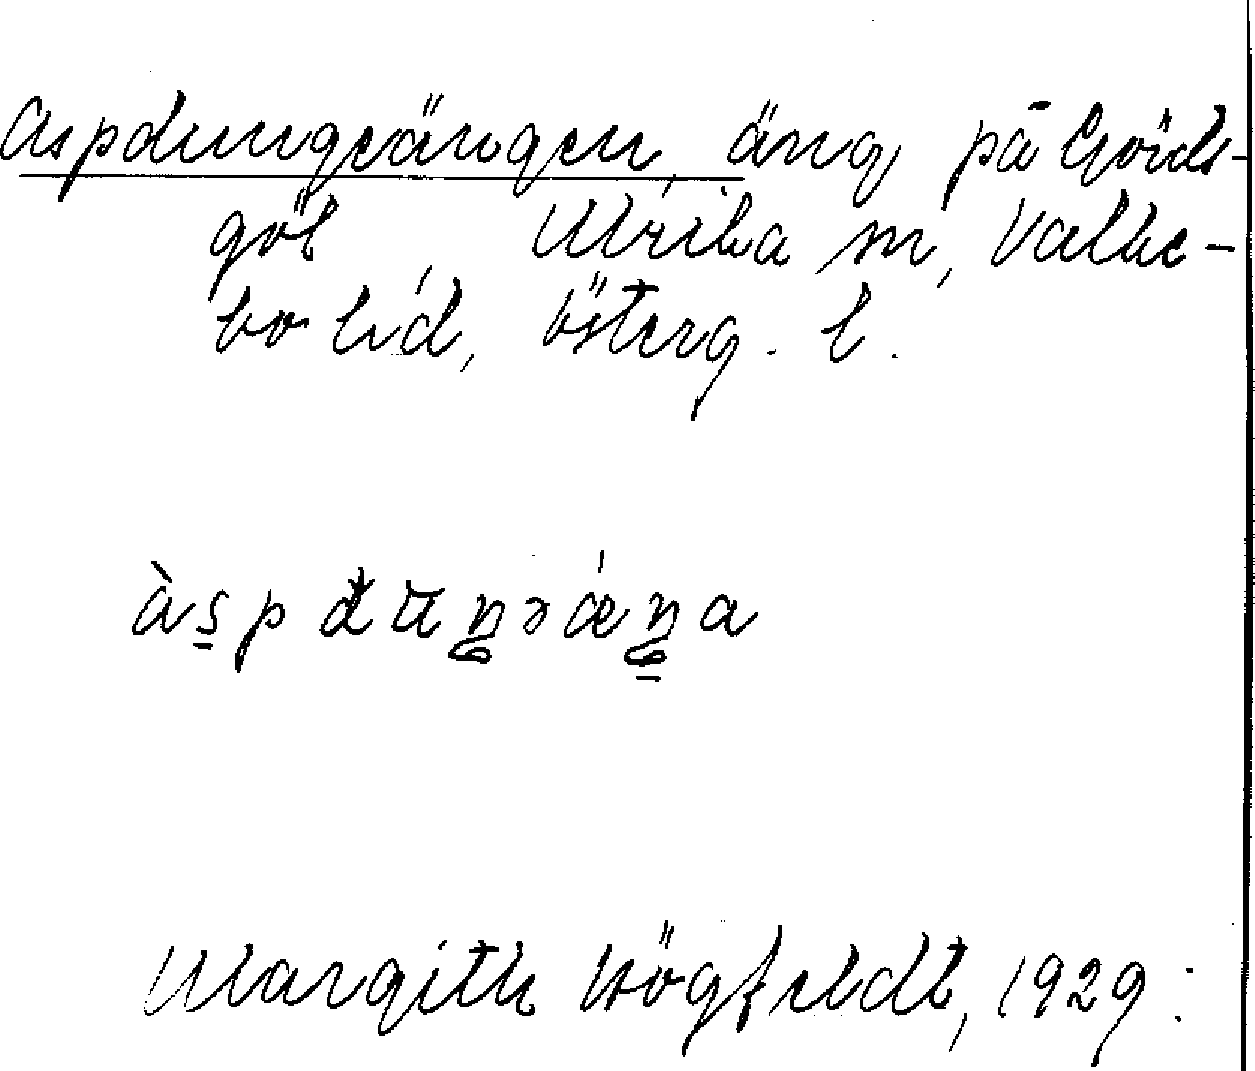 Aspdungeängen, äng på Göids-
göl Ulrika sn, Valke-
bo hd, Österg. l.
àspduŋəǽŋa
Margith Högfeldt, 1929.